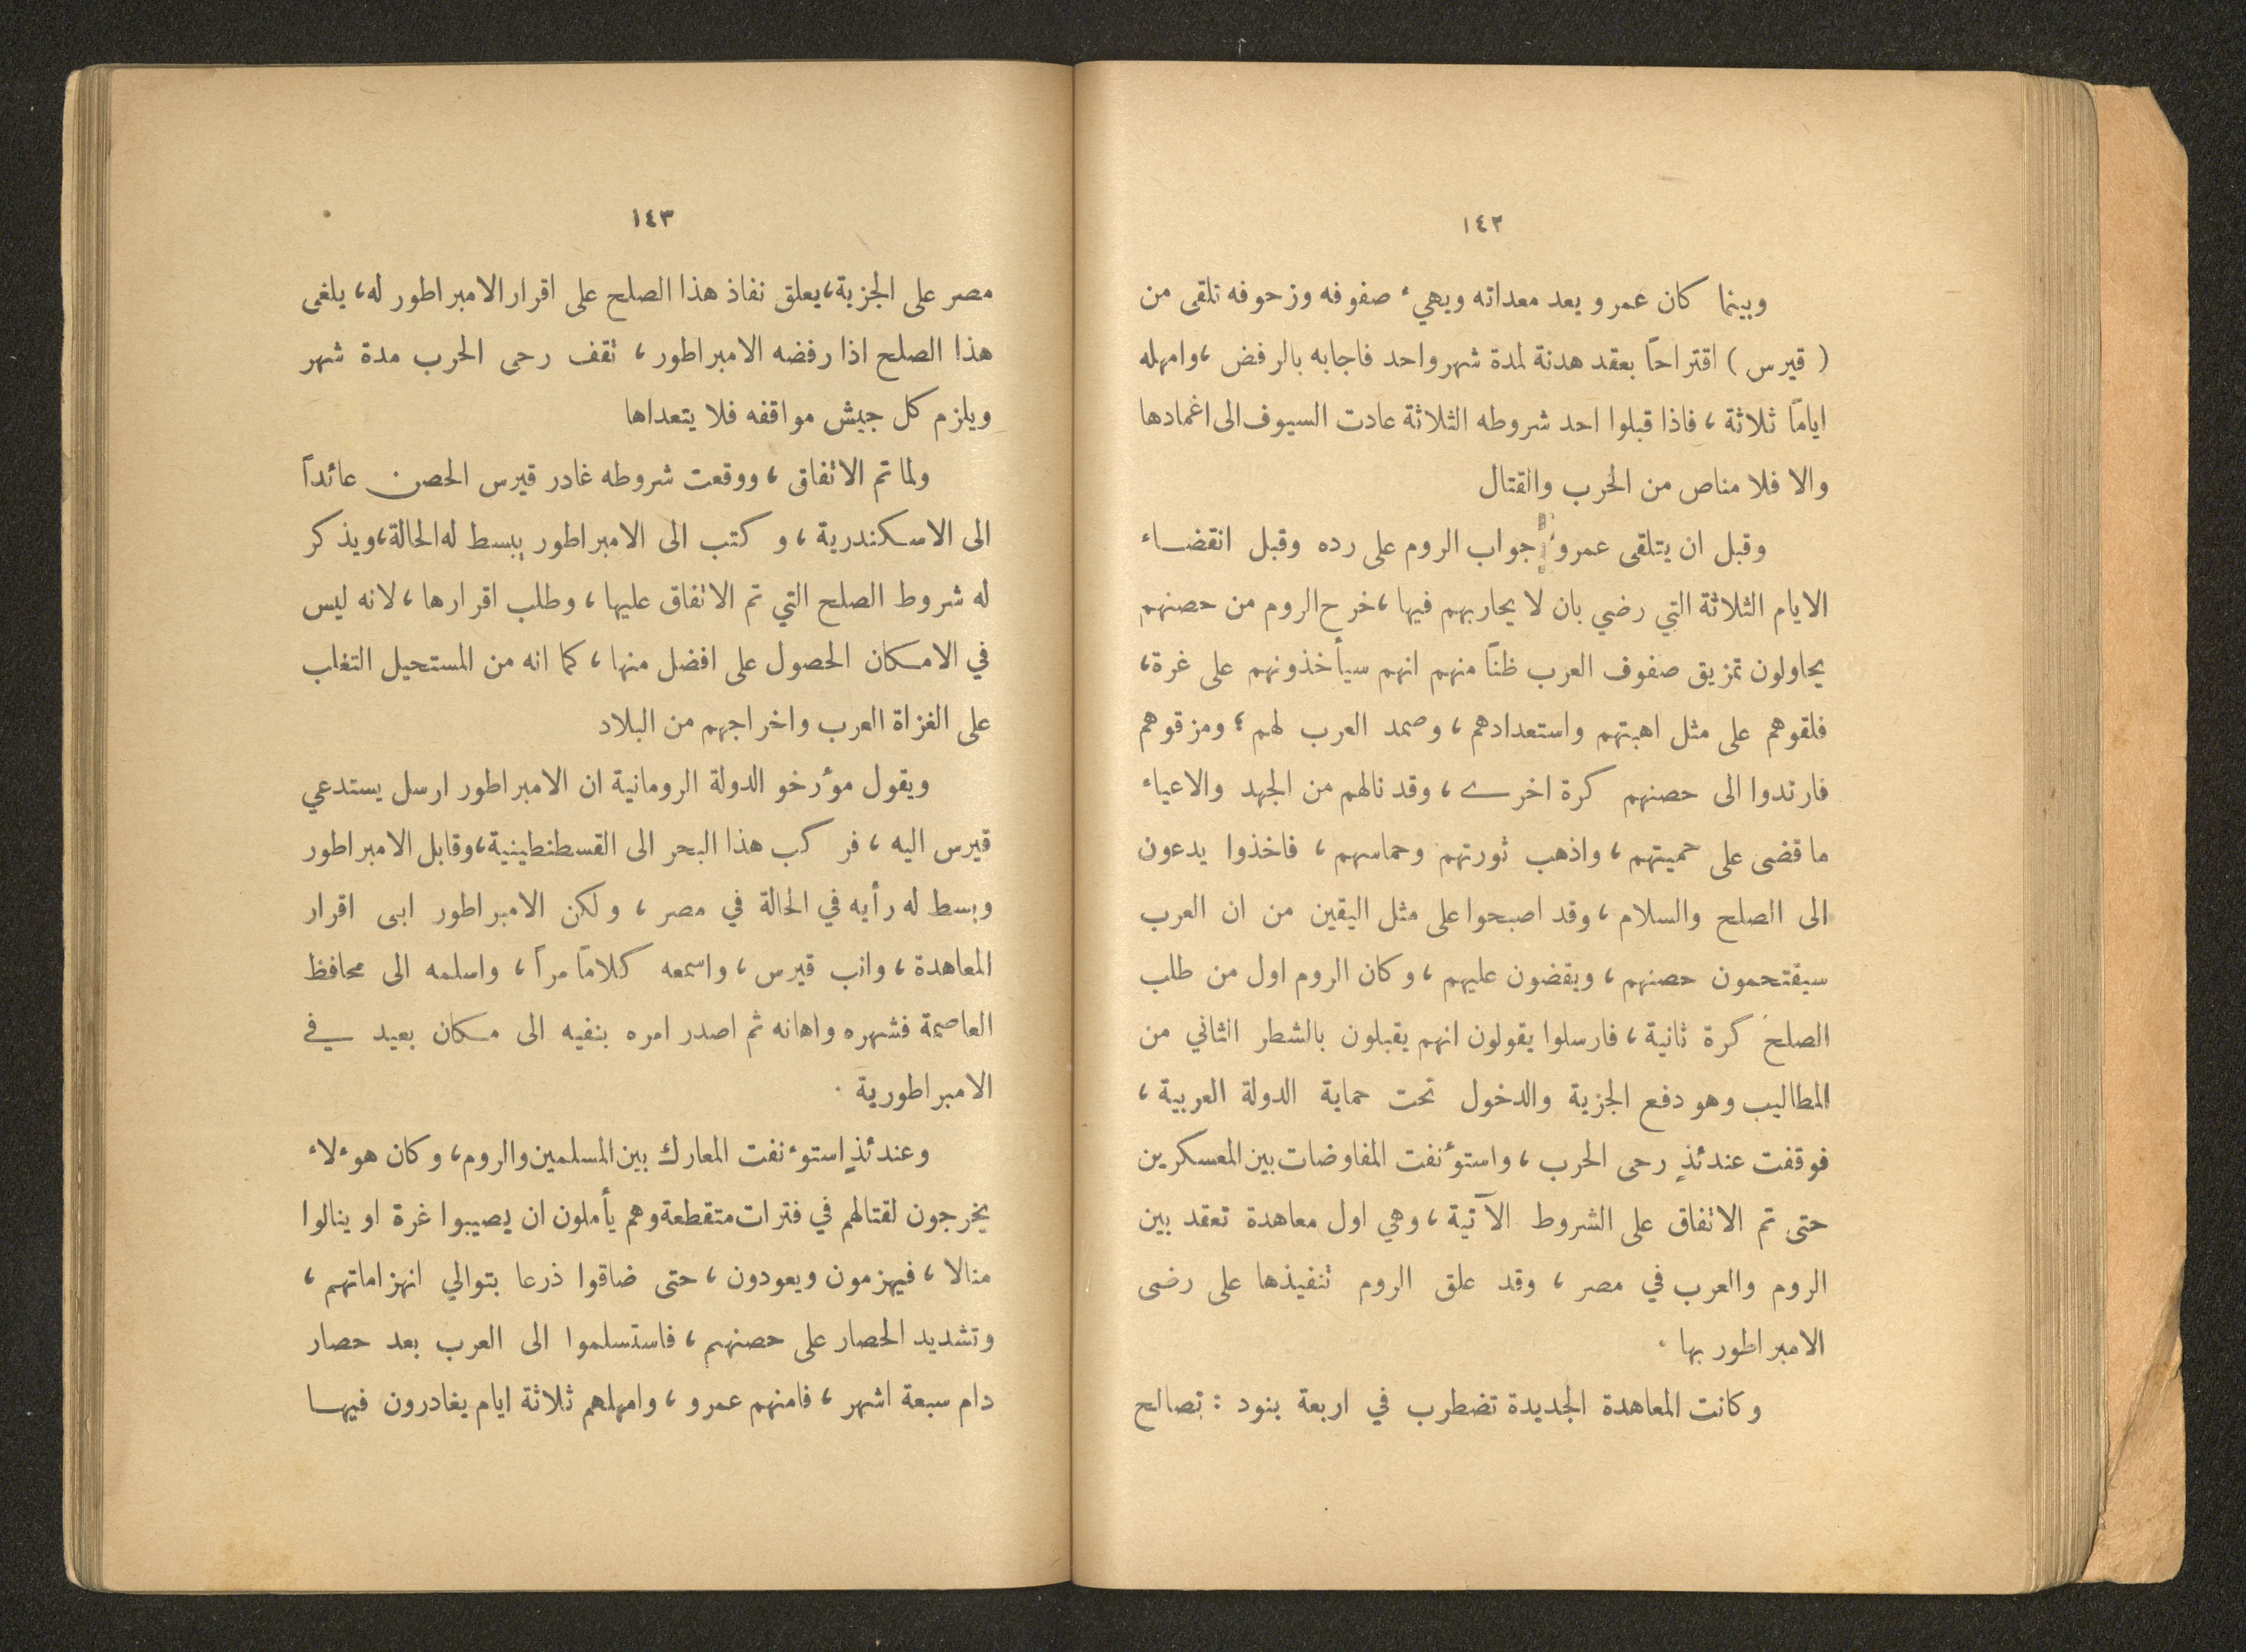 ١٤٢
وبينما كان عمرو يعد معداته ويهيء صفوفه وزحوفه تلقى من
( قيرس ) اقتراحاً بعقد هدنة لمدة شهر واحد فاجابه بالرفض ، وامهله
اياماً ثلاثة ، فاذا قبلوا احد شروطه الثلاثة عادت السيوف الى اغمادها
والا فلا مناص من الحرب والقتال
وقبل ان يتلقى عمرو جواب الروم على رده وقبل انقضاء
الايام الثلاثة التي رضي بان لا يحاربهم فيها ، خرح الروم من حصنهم
يحاولون تمزيق صفوف العرب ظناً منهم انهم سيأخذونهم على غرة ،
فلقوهم على مثل اهبتهم واستعدادهم ، وصمد العرب لهم ؛ ومزقوهم
فارتدوا الى حصنهم كرة اخرى ، وقد نالهم من الجهد والاعياء
ما قضى على حميتهم ، واذهب ثورتهم وحماسهم ، فاخذوا يدعون
الى الصلح والسلام ، وقد اصبحوا على مثل اليقين من ان العرب
سيقتحمون حصنهم ، ويقضون عليهم ، وكان الروم اول من طلب
الصلح كرة ثانية ، فارسلوا يقولون انهم يقبلون بالشطر الثاني من
المطاليب وهو دفع الجزية والدخول تحت حماية الدولة العربية ،
فوقفت عندئذٍ رحى الحرب ، واستؤنفت المفاوضات بين المعسكرين
حتى تم الاتفاق على الشروط الآتية ، وهي اول معاهدة تعقد بين
الروم والعرب في مصر ، وقد علق الروم تنفيذها على رضى
الامبراطور بها .
وكانت المعاهدة الجديدة تضطرب في اربعة بنود : تصالح
١٤٣
مصر على الجزية ، يعلق نفاذ هذا الصلح على اقرار الامبراطور له ، يلغى
هذا الصلح اذا رفضه الامبراطور ، تقف رحى الحرب مدة شهر
ويلزم كل جيش مواقفه فلا يتعداها
ولما تم الاتفاق ، ووقعت شروطه غادر قيرس الحصن عائداً
الى الاسكندرية ، وكتب الى الامبراطور يبسط له الحالة ، ويذكر
له شروط الصلح التي تم الاتفاق عليها ، وطلب اقرارها ، لانه ليس
في الامكان الحصول على افضل منها ، كما انه من المستحيل التغلب
على الغزاة العرب واخراجهم من البلاد
ويقول مؤرخو الدولة الرومانية ان الامبراطور ارسل يستدعي
قيرس اليه ، فركب هذا البحر الى القسطنطينية ، وقابل الامبراطور
وبسط له رأيه في الحالة في مصر ، ولكن الامبراطور ابى اقرار
المعاهدة ، وانب قيرس ، واسمعه كلاماً مراً ، واسلمه الى محافظ
العاصمة فشهره واهانه ثم اصدر امره بنفيه الى مكان بعيد في
الامبراطورية .
وعندئذٍ استوءنفت المعارك بين المسلمين والروم ، وكان هوءلاء
يخرجون لقتالهم في فترات متقطعة وهم يأملون ان يصيبوا غرة او ينالوا
منالا ، فيهزمون ويعودون ، حتى ضاقوا ذرعا بتوالي انهزاماتهم ،
وتشديد الحصار على حصنهم ، فاستسلموا الى العرب بعد حصار
دام سبعة اشهر ، فامنهم عمرو ، وامهلهم ثلاثة ايام يغادرون فيها